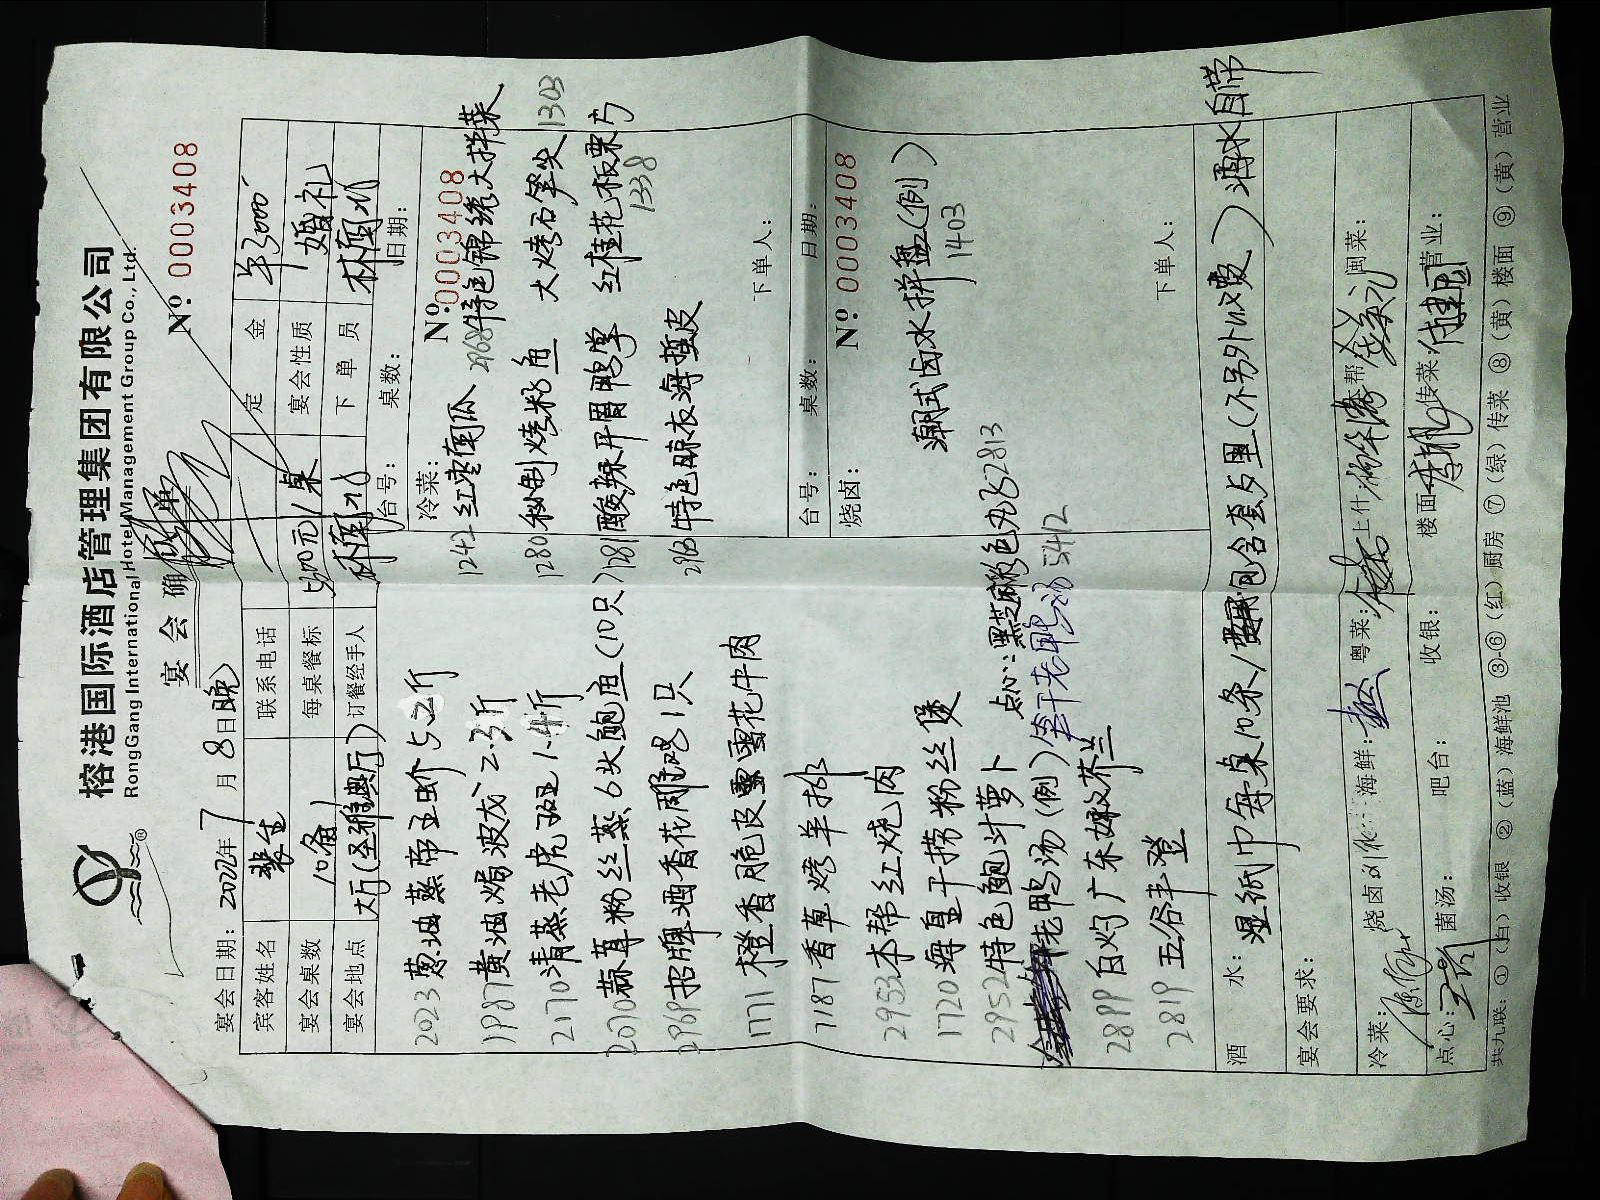 榕港国际酒店管理集团有限公司
RongGang International Hotel Management Group Co., Ltd.
宴会确
№ 0003408
宴会日期: 2022年7月8日晚
宾客姓名 裴生 联系电话 定金 ¥3000
宴会桌数 10备1 每桌餐标 元/桌 宴会性质 婚礼
宴会地点 大厅(圣雅典厅) 订餐经手人 下单员
台号: 桌数: 日期:
冷菜: № 0003408
2023 葱油蒸帝王蚧5.2斤
1987 黄油焗波龙2.3斤
2170 清蒸老虎斑1.4斤
2070 蒜茸粉丝蒸6头鲍鱼(10只)
2969 招牌酒香花雕鸡1只
1771 橙香脆皮雪花牛肉
7187 香草烤羊排
2953 本帮红烧肉
1720 海皇干捞粉丝煲
2952 特色鲍汁萝卜
老鸭汤(例)
2899 白灼广东嫩芥兰
2819 五谷丰登
1242 红枣南瓜 2968 特色锦绣大拌菜
1280 秘制烧粉鱼 大烤石笋尖 1303
1281 酸辣开胃鸭掌 红桂花板栗 1338
2963 特色晾衣海蜇皮
下单人:
台号: 桌数: 日期:
烧卤: № 0003408
潮式卤水拼盘(例)
1403
点心: 黑芝麻 2813
5412
下单人:
酒水: 湿纸巾每桌10条/ 包含套房里(不另外收费) 酒水自带
宴会要求:
冷菜: 烧卤 海鲜: 粤菜: 上什 本帮 闽菜:
点心: 菌汤: 吧台: 收银: 楼面 传菜: 营业:
共九联: ①(白)收银 ②(蓝)海鲜池 ③-⑥(红)厨房 ⑦(绿)传菜 ⑧(黄)楼面 ⑨(黄)营业